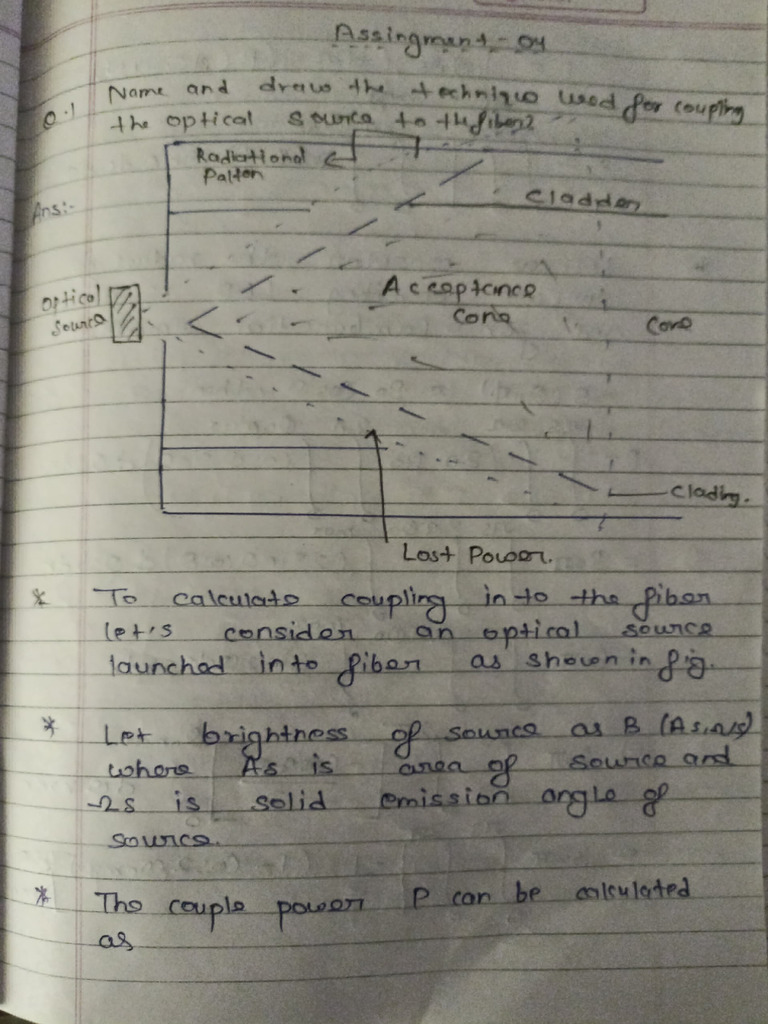 Assingment - 04
Q.1 Name and draw the technique used for coupling
the optical source to the fiber?
Ans:-
Radiational
Patton
Cladden
Optical
Source
Acceptance
Cone
Core
Clading.
Lost Power.
* To calculate coupling in to the fiber
let's consider an optical source
launched into fiber as shown in fig.
* Let brightness of source as B (As, Ωs)
where As is area of source and
Ωs is solid emission angle of
source.
* The couple power P can be calculated
as